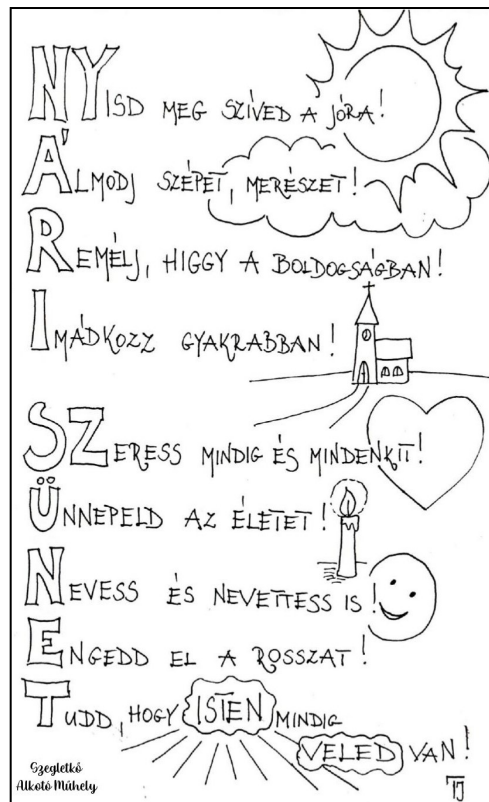 NYISD MEG SZÍVED A JÓRA!
ÁLMODJ SZÉPET, MERÉSZET!
REMÉLJ, HIGGY A BOLDOGSÁGBAN!
IMÁDKOZZ GYAKRABBAN!
SZERESS MINDIG ÉS MINDENKIT!
ÜNNEPELD AZ ÉLETET!
NEVESS ÉS NEVETTESS IS!
ENGEDD EL A ROSSZAT!
TUDD, HOGY ISTEN MINDIG
VELED VAN!
Szegletkő
Alkotó Műhely
TJ